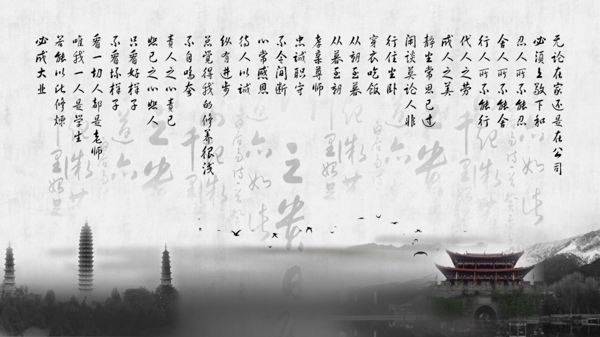 无论在家还是在公司
必须上敬下和
忍人所不能忍
舍人所不能舍
行人所不能行
代人之劳
成人之美
静坐常思己过
闲谈莫论人非
行住坐卧
穿衣吃饭
从初至暮
从暮至初
孝亲尊师
忠诚职守
不令间断
心常感恩
待人以诚
纵有进步
总觉得我的修养很浅
不自鸣夸
责人之心责己
恕己之心恕人
只看好样子
不看坏样子
看一切人都是老师
唯我一人是学生
若能以此修炼
必成大业